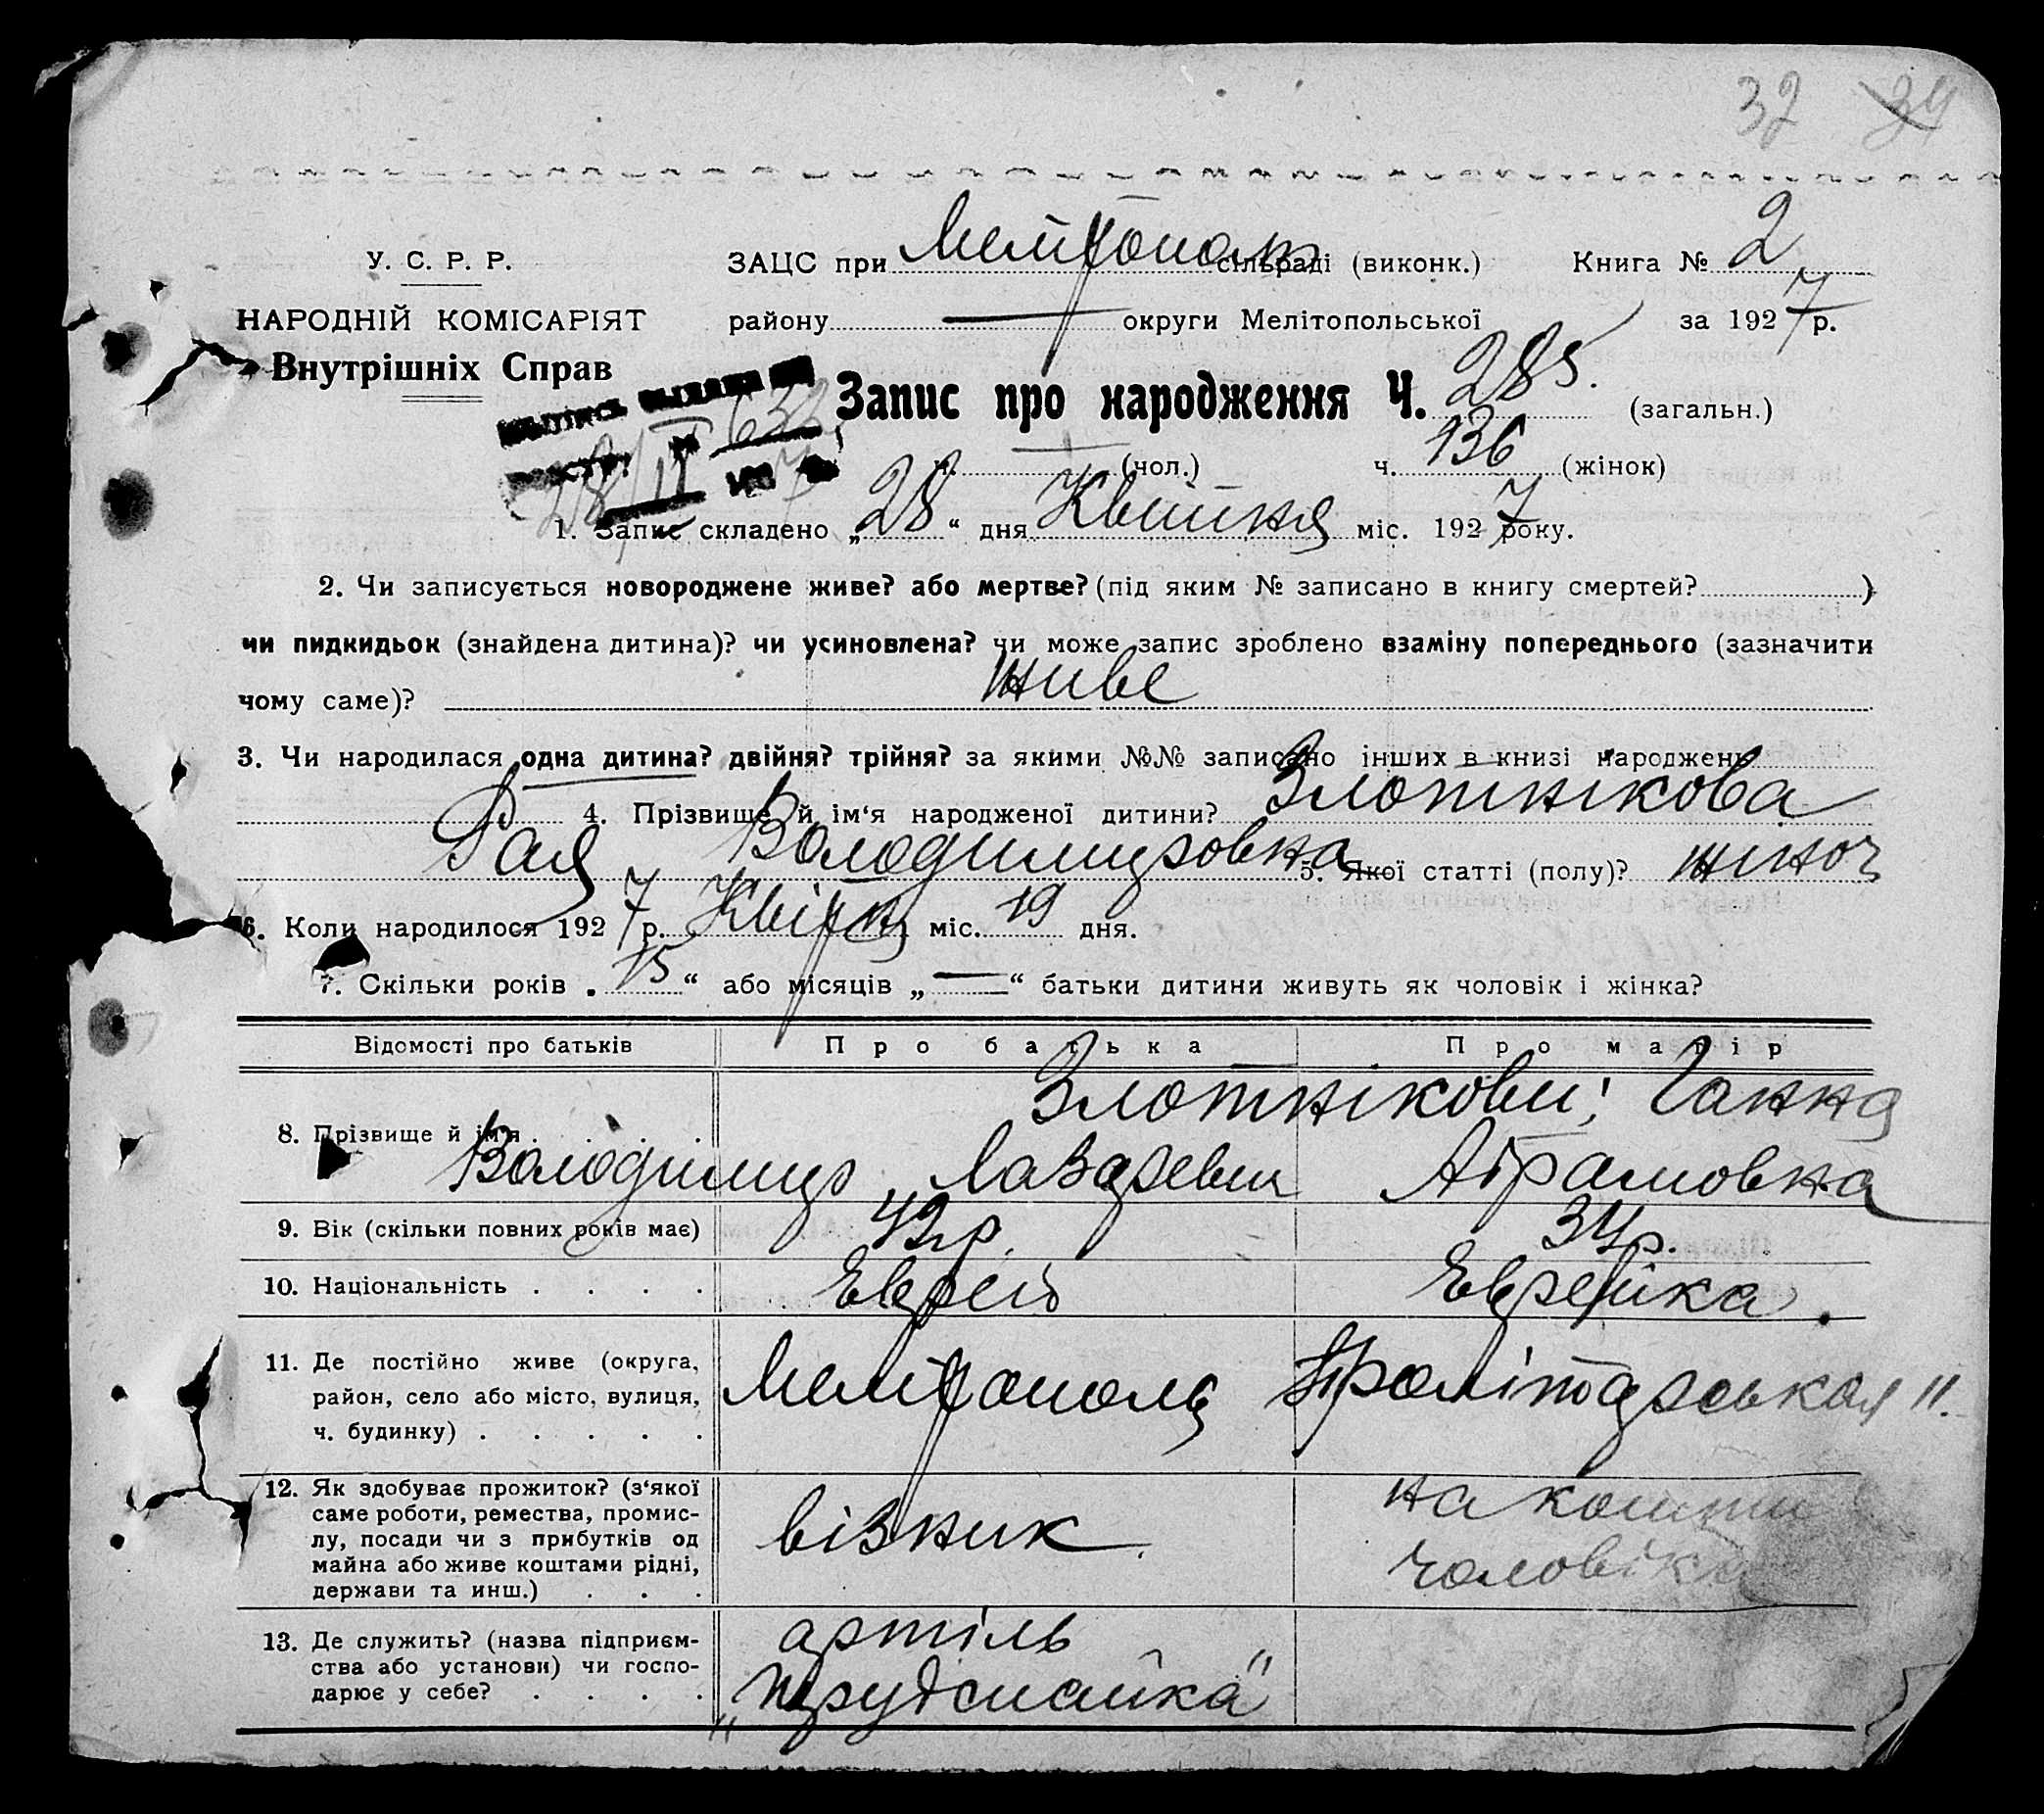 32 34
У. С. Р. Р. ЗАЦС при Мелітополь сільраді (виконк.) Книга № 2
НАРОДНІЙ КОМІСАРІЯТ району — округи Мелітопольської за 1927 р.
Внутрішніх Справ
Запис про народження Ч. 285. (загальн.)
ч. — (чол.) ч. 136 (жінок)
1. Запис складено „28“ дня Квітня міс. 1927 року.
2. Чи записується новороджене живе? або мертве? (під яким № записано в книгу смертей? )
чи пидкидьок (знайдена дитина)? чи усиновлена? чи може запис зроблено взаміну попереднього (зазначити
чому саме)? живе
3. Чи народилася одна дитина? двійня? трійня? за якими №№ записано інших в книзі народжень
4. Прізвище й ім‘я народженої дитини? Злотнікова
Рая Володимировна 5. Якої статті (полу)? жіноч
6. Коли народилося 1927 р. Квітня міс. 19 дня.
7. Скільки років „15“ або місяців „—“ батьки дитини живуть як чоловік і жінка?
Відомості про батьків Про батька Про матір
Злотнікови: Ганна
8. Прізвище й ім‘я . . . .
Володимир Лазаревич Абрамовна
9. Вік (скільки повних років має) 42 р. 34 р.
10. Національність . . . . Еврей Еврейка.
11. Де постійно живе (округа,
район, село або місто, вулиця, Мелітополь Пролітарськая 11.
ч. будинку) . . . . .
12. Як здобуває прожиток? (з‘якої на кошти
саме роботи, ремества, промис-
лу, посади чи з прибутків од візник. чоловіка
майна або живе коштами рідні,
держави та инш.) . . .
13. Де служить? (назва підприєм- артіль
ства або установи) чи госпо-
дарює у себе? . . . .